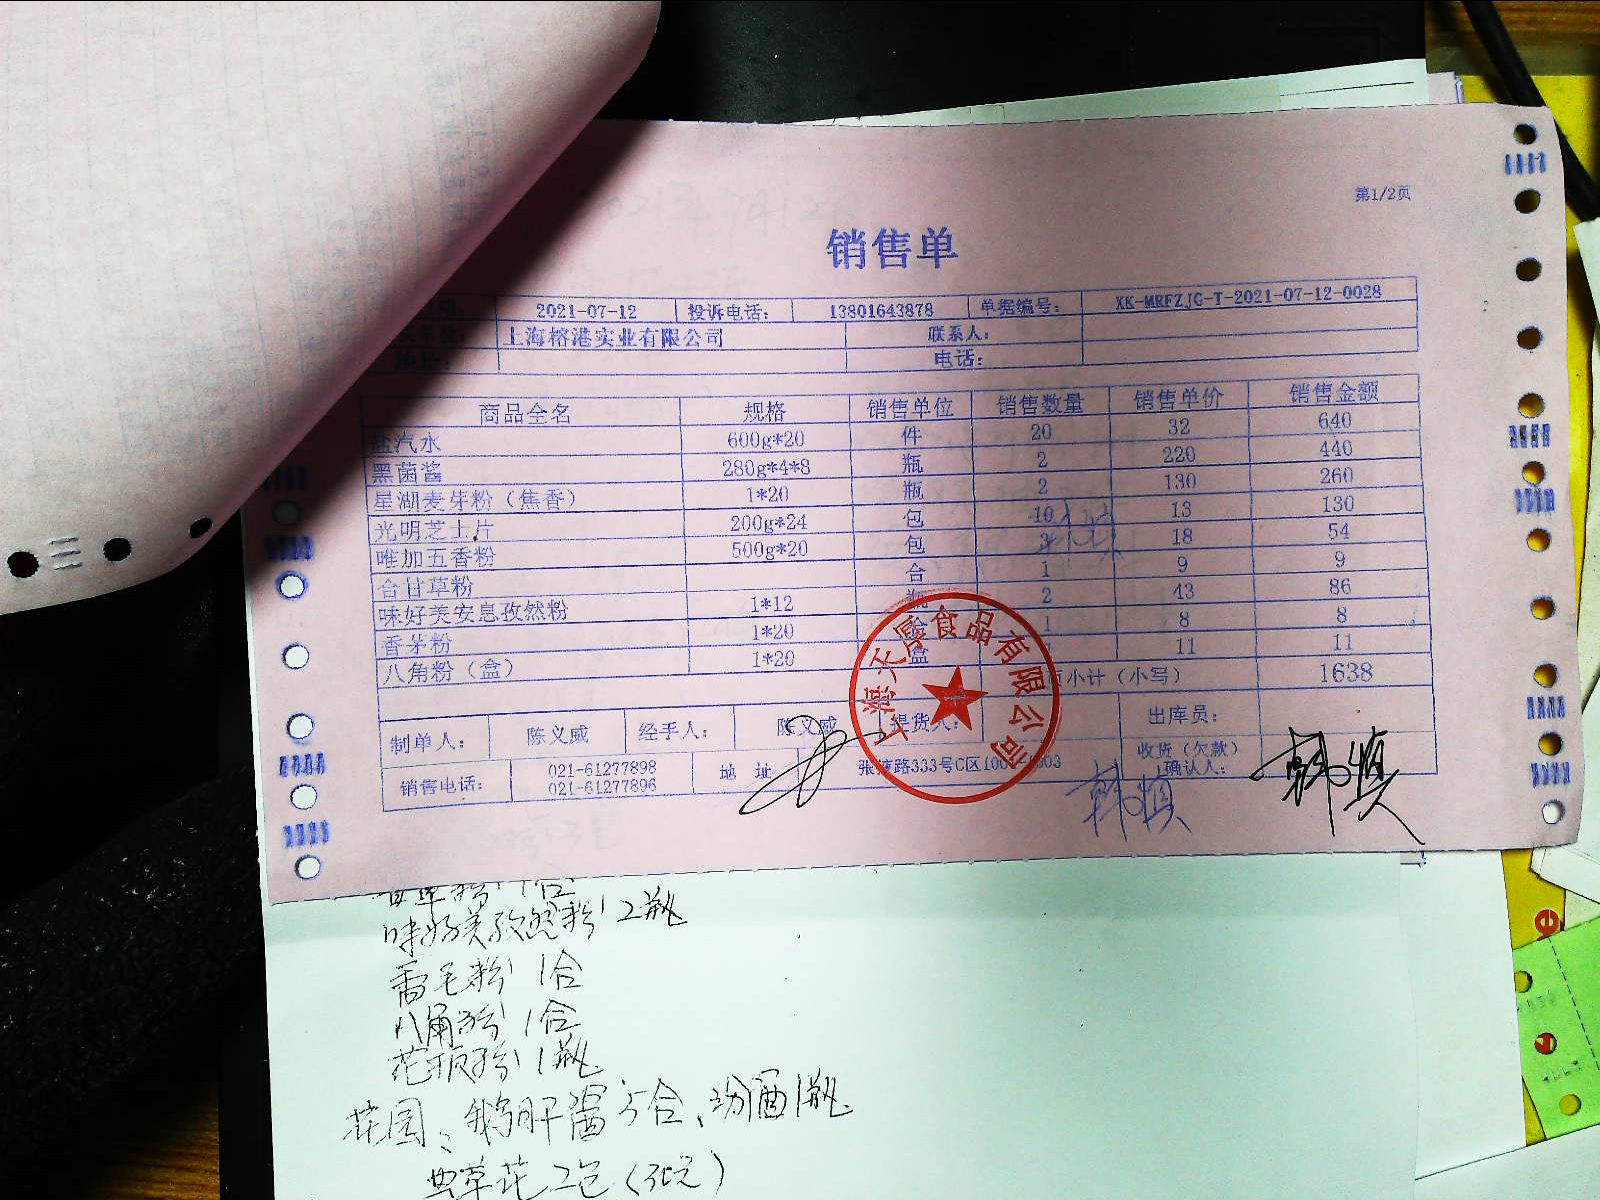 第1/2页
销售单
2021-07-12 投诉电话: 13801643878 单据编号: XK-MRFZJG-T-2021-07-12-0028
上海榕港实业有限公司 联系人:
电话:
商品全名 规格 销售单位 销售数量 销售单价 销售金额
盐汽水 600g*20 件 20 32 640
黑菌酱 280g*4*8 瓶 2 220 440
星湖麦芽粉（焦香） 1*20 瓶 2 130 260
光明芝士片 200g*24 包 10 13 130
唯加五香粉 500g*20 包 3 18 54
合甘草粉 合 1 9 9
味好美安息孜然粉 1*12 瓶 2 43 86
香茅粉 1*20 1 8 8
八角粉（盒） 1*20 盒 11 11
小计（小写） 1638
制单人: 陈义威 经手人: 陈义威 提货人: 出库员:
销售电话: 021-61277898 地 址 333号C区 收货（欠款）
021-61277896 确认人:
上海天厨食品有限公司
韩慎 韩慎
甘草粉 1合
味好美孜然粉 2瓶
香毛粉 1合
八角粉 1合
花椒粉 1瓶
花园、鹅肝酱5合、汾酒1瓶
虫草花2包